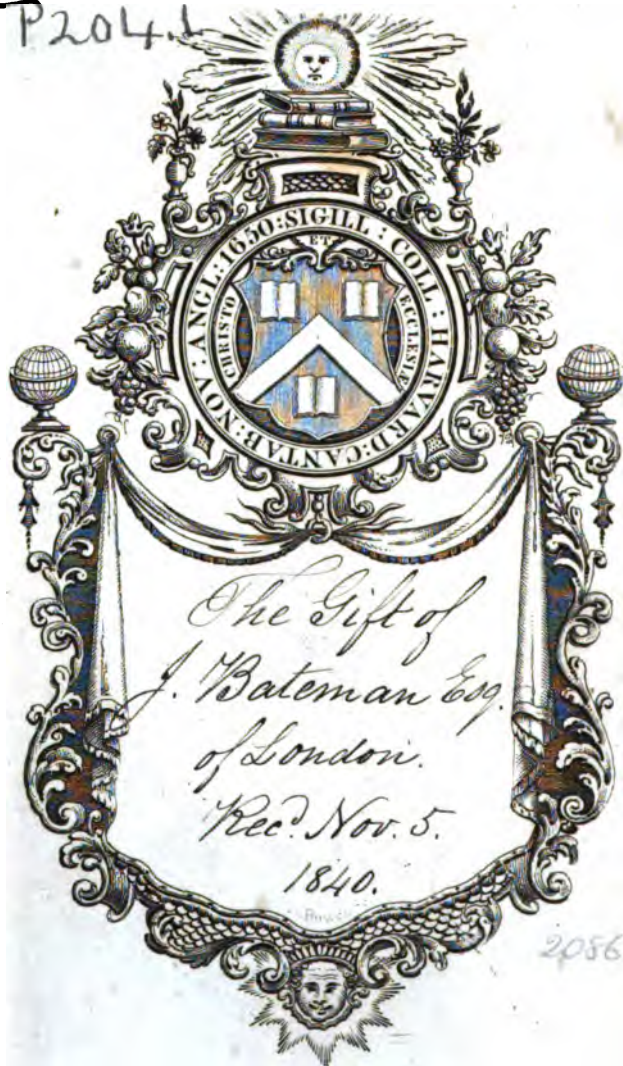 P204.1
SIGILL : COLL : HARVARD : CANTAB : NOV : ANGL : 1650 :
CHRISTO ET ECCLESIÆ
The Gift of
J. Bateman Esq.
of London.
Rec.d Nov. 5.
1840.
2086